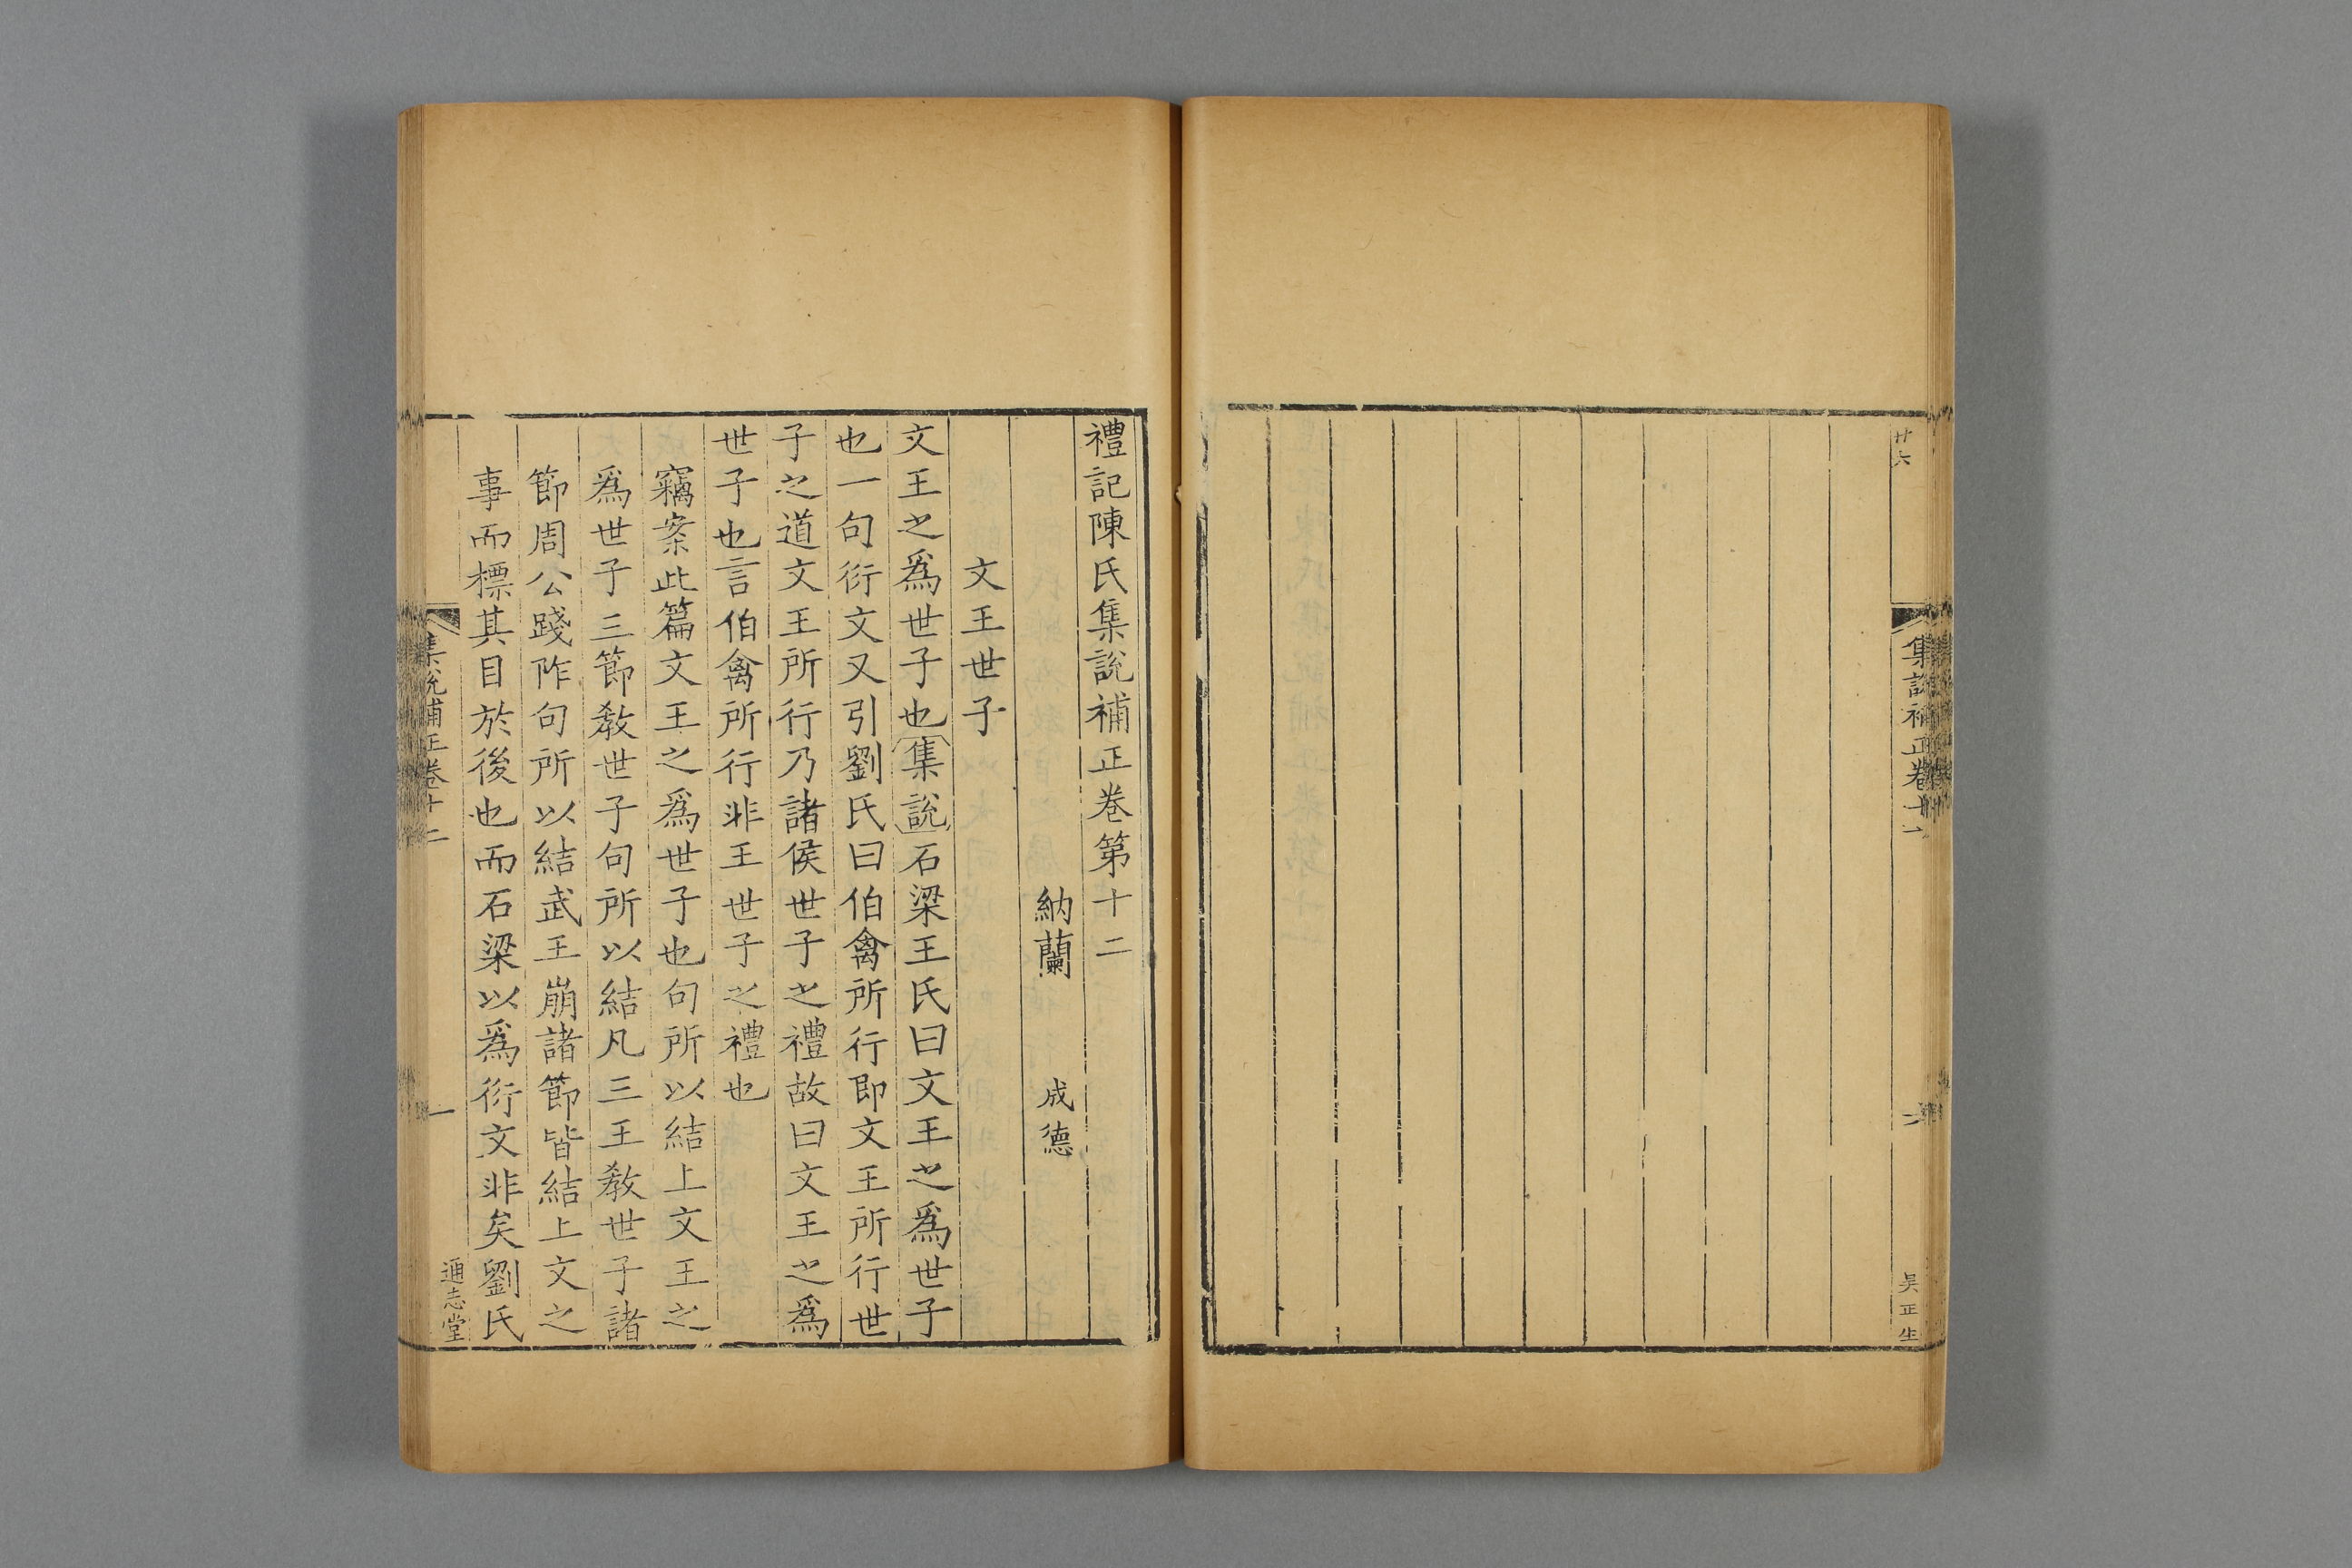 廿六
集說補正卷十一
吴正生
禮記陳氏集說補正卷第十二
納蘭成德
文王世子
文王之爲世子也集說石梁王氏曰文王之爲世子
也一句衍文又引劉氏曰伯禽所行即文王所行世
子之道文王所行乃諸侯世子之禮故曰文王之爲
世子也言伯禽所行非王世子之禮也
竊案此篇文王之爲世子也句所以結上文王之
爲世子三節教世子句所以結凡三王教世子諸
節周公踐阼句所以結武王崩諸節皆結上文之
事而標其目於後也而石梁以爲衍文非矣劉氏
集說補正卷十二
一
通志堂